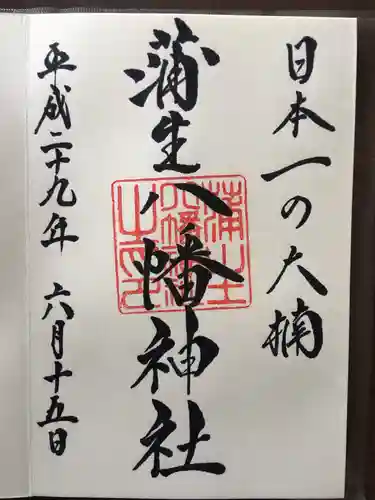 日本一の大楠
蒲生八幡神社
平成二十九年 六月十五日
蒲生
八幡神社
之印